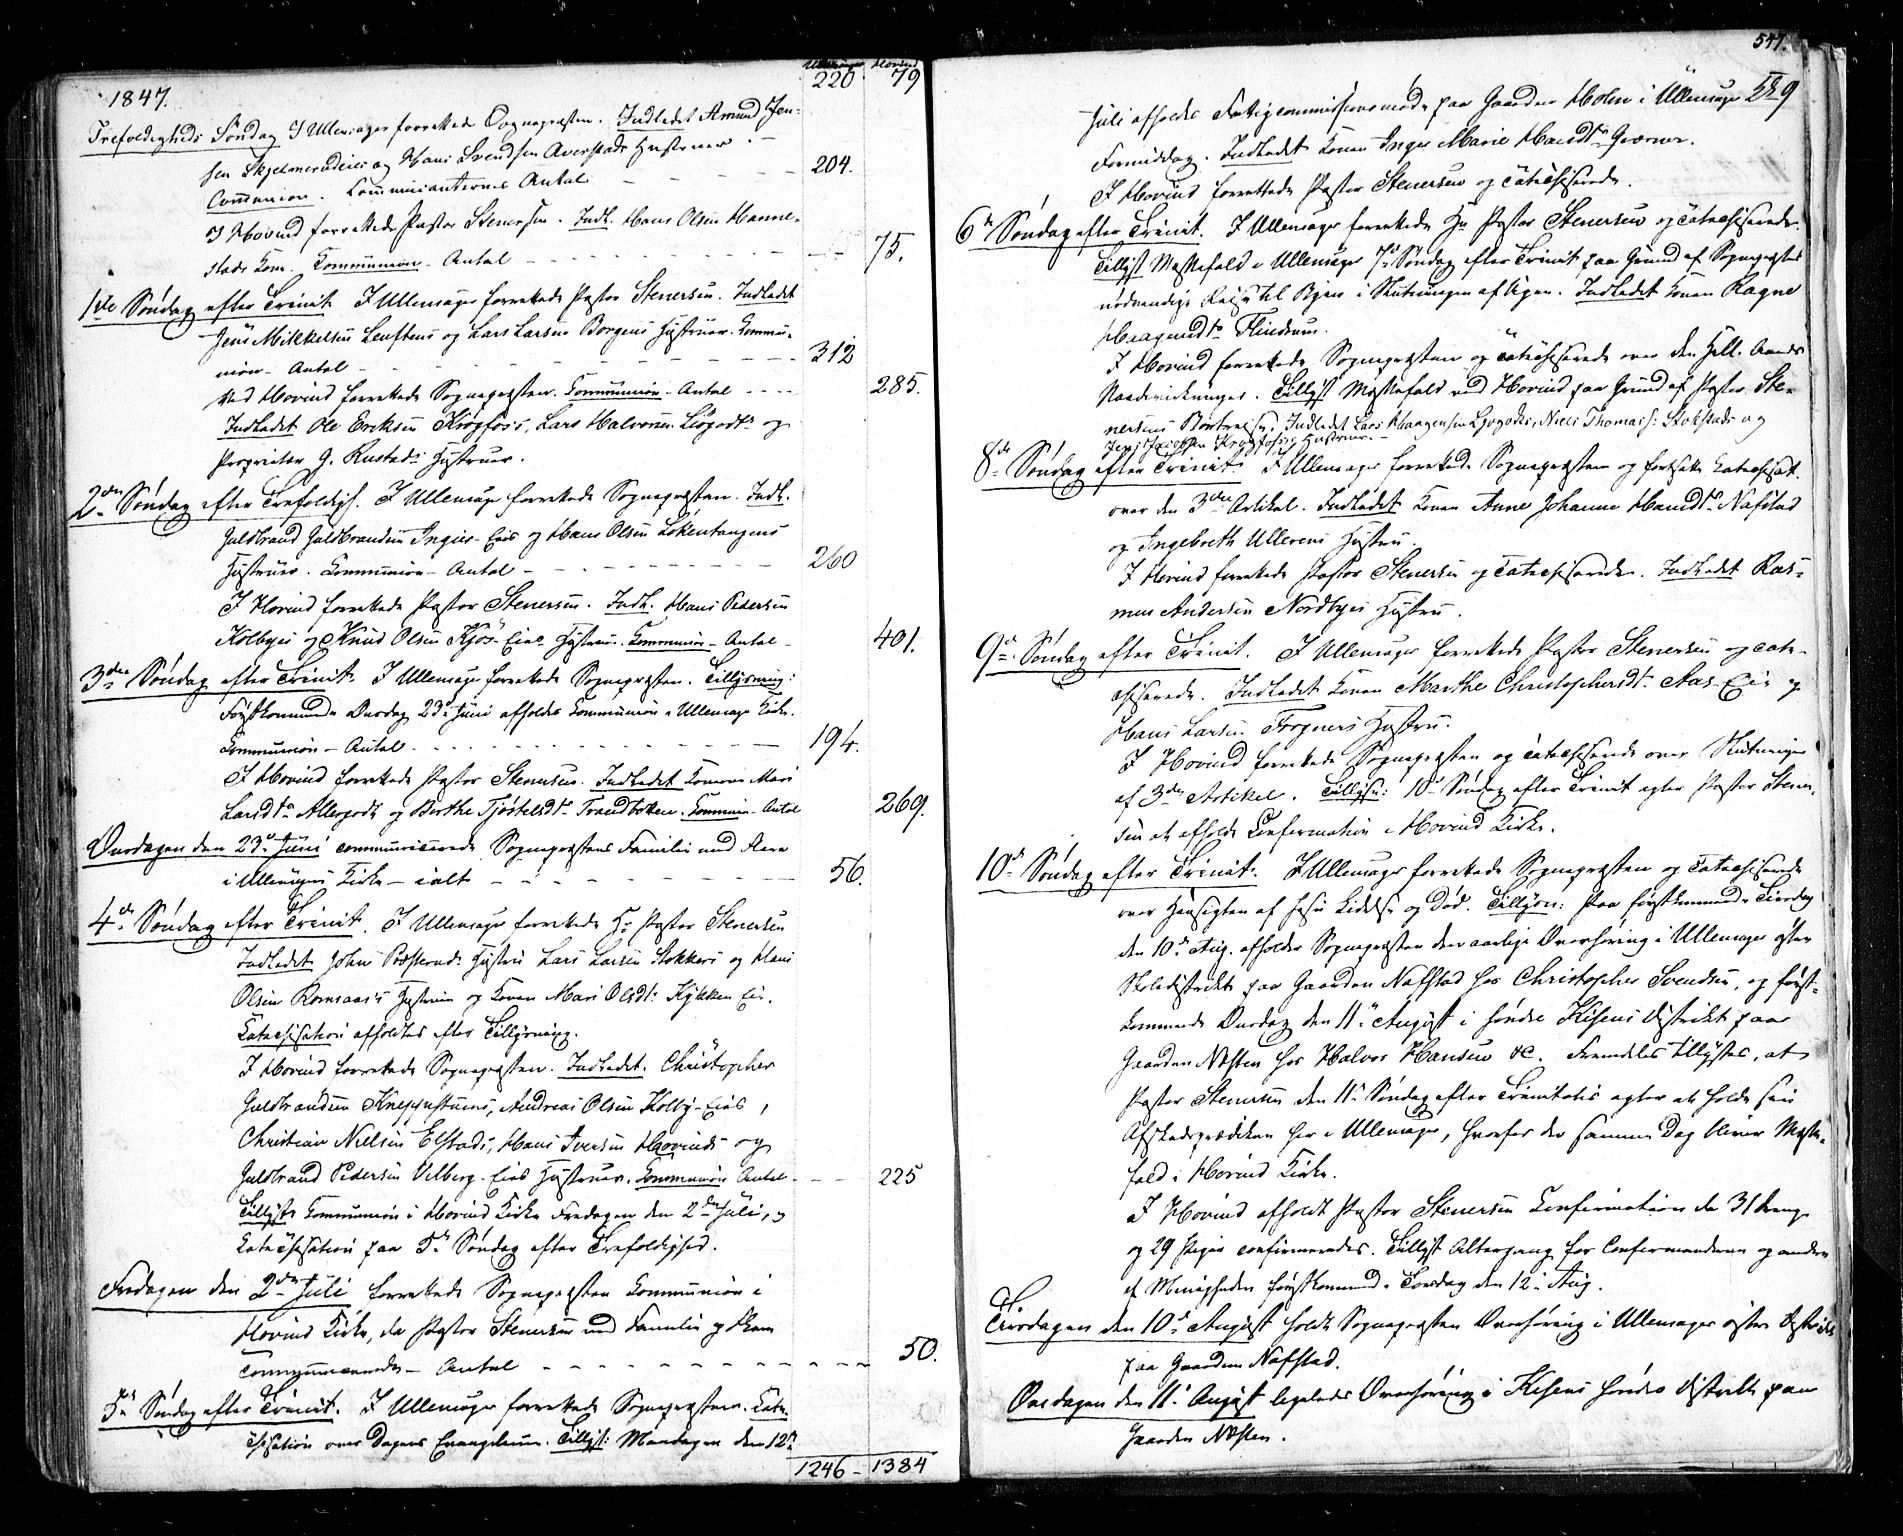 Ullensager Hovind
1847. 220 79
Trefoldigheds Søndag I Ullensager forrettede Sognepræsten. Indledet Amund Jen-
sen Skjelmerudeies og Hans Svendsen Averstads Hustruer. -
Communion. Communicanternes Antal - - - - 204.
I Hovind forrettede Pastor Stenersen. Indl. Hans Olsen Hanne-
stads Kone. Communion - Antal - - - - 75.
1ste Søndag efter Trinit. I Ullensager forrettede Pastor Stenersen. Indledet
Jens Mikkelsen Leuftens og Lars Larsen Borgens Hustruer. Commu-
nion - Antal - - - - 312
Ved Hovind forrettede Sognepræsten. Communion - Antal - - - - 285.
Indledet Ole Eriksen Krogfoss, Lars Halvorsen Liøgodts og
Proprietær G. Rustads Hustruer.
2den Søndag efter Trefoldigh. I Ullensager forrettede Sognepræsten. Indl.
Guldbrand Guldbrandsen Ingiers-Eies og Hans Olsen Løkentangens
Hustruer. Communion - Antal - - - - 260
I Hovind forrettede Pastor Stenersen. Indl. Hans Pedersen
Kolbyes og Knud Olsen Kjøs-Eies Hustruer. Communion - Antal - 401.
3die Søndag efter Trinit. I Ullensager forrettede Sognepræsten. Tillysning:
Førstkommende Onsdag 23de Juni afholdes Communion i Ullensager Kirke.
Communion - Antal - - - - 194.
I Hovind forrettede Pastor Stenersen. Indledet Konerne Mari
Larsdtr Allergodt og Berthe Kjøstelsdtr Trandbakken. Communion - Antal 269.
Onsdagen den 23de Juni communicerede Sognepræstens Familie med Flere
i Ullensagers Kirke - ialt - - - - 56.
4de Søndag efter Trinit. I Ullensager forrettede Hr Pastor Stenersen
Indledet John Præsteruds Hustru Lars Larsen Stokkers og Hans
Olsen Romsaas's Hustruer og Konen Mari Olsdtr Kjøkken Eie.
Katechisation afholdtes efter Tillysning.
I Hovind forrettede Sognepræsten. Indledet. Christopher
Guldbrandsen Kneppestuens, Andreas Olsen Kolby-Eies,
Christian Nielsen Elstads, Hans Iversen Hovinds og
Guldbrand Pedersen Vilberg-Eies Hustruer. Communion Antal - - - 225
Tillyst Communion i Hovind Kirke Fredagen den 2den Juli, og
Katechisation paa 5te Søndag efter Trefoldighed.
Fredagen den 2den Juli forrettede Sognepræsten Communion i
Hovind Kirke, da Pastor Stenersen med Familie og Flere
communicerede - Antal - - - - 50.
5te Søndag efter Trinit. I Ullensager forrettede Sognepræsten. Kate-
chisation over Dagens Evangelium. Tillyst: Mandagen den 12te
1246 - 1384
547.
Juli afholdes Fattigcommissionsmøde paa Gaarden Holm i Ullensager 529
Formiddag. Indledet Konen Inger Marie Hansdtr Gværner.
I Hovind forrettede Pastor Stenersen og catechiserede.
6te Søndag efter Trinit. I Ullensager forrettede Hr Pastor Stenersen og catechiserede.
Tillyst Messefald i Ullensager 7de Søndag efter Trinit. paa Grund af Sognepræstens
nødvendige Reise til Byen i Slutningen af Ugen. Indledet Konen Ragne
Haagensdtr Flindrum.
I Hovind forrettede Sognepræsten og catechiserede over den Hell. Aands
Naadevirkninger. Tillyst Messefald ved Hovind paa Grund af Pastor Ste-
nersens Bortreise. Indledet Lars Haagensen Lysgods, Niels Thomass: Stokstads og
Jens Jacobsen Krogfosses Hustruer. -
8de Søndag efter Trinit. I Ullensager forrettede Sognepræsten og fortsatte Katechisat.
over den 3die Artikel. Indledet Konen Anne Johanne Hansdtr Nafstad
og Ingebreth Ullerens Hustru.
I Hovind forrettede Pastor Stenersen og catechiserede. Indledet Ras-
mus Andersen Nordbyes Hustru.
9de Søndag efter Trinit. I Ullensager forrettede Pastor Stenersen og cate-
chiserede. Indledet Konen Marthe Christophersdtr Aas-Eie og
Hans Larsen Frogners Hustru.
I Hovind forrettede Sognepræsten og catechiserede over Slutningen
af 3die Artikel. Tillyst: 10de Søndag efter Trinit. agter Pastor Stener-
sen at afholde Confirmation i Hovind Kirke.
10de Søndag efter Trinit. I Ullensager forrettede Sognepræsten og catechiserede
over Hensigten af Jesu Lidelse og Død. Tillysn: Paa førstkommende Tirsdag
den 10de Aug. afholder Sognepræsten den aarlige Overhøring i Ullensager østre
Skoledistrikt paa Gaarden Nafstad hos Christopher Svendsen, og først-
kommende Onsdag den 11te August i søndre Kisens Distrikt paa
Gaarden Nøsten hos Halvor Hansen &c. Fremdeles tillystes, at
Pastor Stenersen den 11te Søndag efter Trinitatis agter at holde sin
Afskedsprædiken her i Ullensager, hvorfor der samme Dag bliver Messe-
fald i Hovind Kirke.
I Hovind afholdt Pastor Stenersen Confirmation da 31 Drenge
og 29 Piger confirmeredes. Tillyst Altergang for Confirmanderne og andre
af Menigheden førstkommende Torsdag den 12te Aug.
Tirsdagen den 10de August holdt Sognepræsten Overhøring i Ullensager østre Distrikt
paa Gaarden Nafstad.
Onsdagen den 11te August ligeledes Overhøring i Kisens søndre Distrikt paa
Gaarden Nøsten.